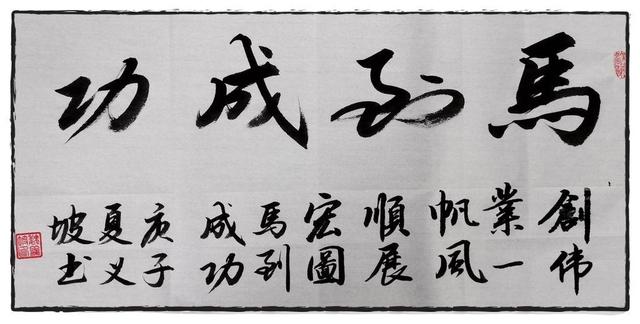 馬到成功
創伟
業一
帆風
順展
宏圖
馬到
成功
庚子
夏义
坡书